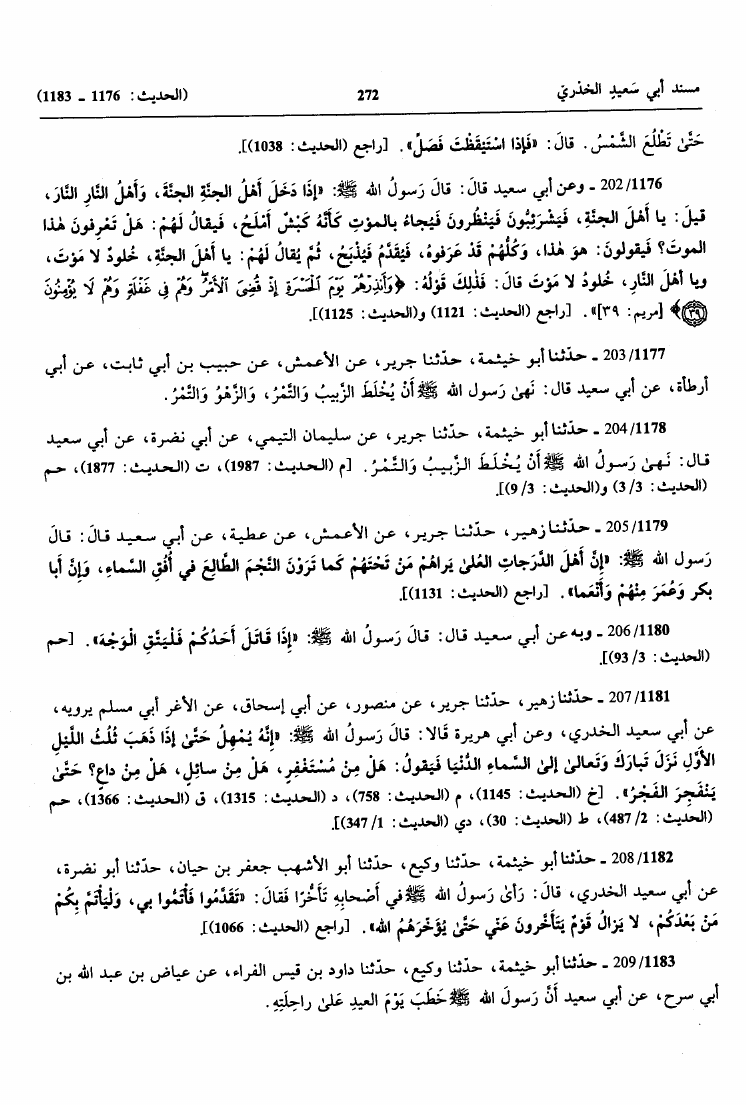 مسند أبي سَعيدٍ الخذريّ 272 (الحديث: 1176 ـ 1183)
حَتَّىٰ تَطْلُعَ الشَّمْسُ. قالَ: «فَإذا اسْتَيْقَظْتَ فَصَلِّ». [راجع (الحديث: 1038)].
202/1176 ـ وعن أبي سعيد قالَ: قالَ رَسولُ الله ﷺ: «إذَا دَخَلَ أهْلُ الجنَّةِ الجنَّةَ، وَأهْلُ النَّارِ النَّارَ،
قيلَ: يا أهْلَ الجنَّةِ، فَيَشْرَئِبُّونَ فَيَنْظُرونَ فَيُجاءُ بالموْتِ كَأنَّهُ كَبْشٌ أمْلَحُ، فَيقالُ لَهُمْ: هَلْ تَعْرِفونَ هٰذا
الموتَ؟ فَيقولونَ: هوَ هٰذا، وَكُلُّهُمْ قَدْ عَرَفوهُ، فَيُقَدَّمُ فَيُذْبَحُ، ثُمَّ يُقالُ لَهُمْ: يا أهلَ الجنَّةِ، خُلودٌ لا مَوْتَ،
ويا أهْلَ النَّارِ، خُلودٌ لا مَوْتَ قالَ: فَذٰلِكَ قَوْلُهُ: ﴿وَأَنذِرْهُمْ يَوْمَ الْحَسْرَةِ إِذْ قُضِيَ الْأَمْرُ وَهُمْ فِي غَفْلَةٍ وَهُمْ لَا يُؤْمِنُونَ
(٣٩)﴾ [مريم: ٣٩]». [راجع (الحديث: 1121) و(الحديث: 1125)].
203/1177 ـ حدّثنا أبو خيثمة، حدّثنا جرير، عن الأعمش، عن حبيب بن أبي ثابت، عن أبي
أرطأة، عن أبي سعيد قال: نَهىٰ رَسول الله ﷺ أنْ يُخْلَطَ الزَّبيبُ وَالتَّمْرُ، وَالزَّهْوُ وَالتَّمْرُ.
204/1178 ـ حدّثنا أبو خيثمة، حدّثنا جرير، عن سليمان التيمي، عن أبي نضرة، عن أبي سعيد
قال: نَهىٰ رَسولُ الله ﷺ أنْ يُخْلَطَ الزَّبيبُ وَالتَّمْرُ. [م (الحديث: 1987)، ت (الحديث: 1877)، حم
(الحديث: 3/3) و(الحديث: 9/3)].
205/1179 ـ حدّثنا زهير، حدّثنا جرير، عن الأعمش، عن عطية، عن أبي سعيد قالَ: قالَ
رَسول الله ﷺ: «إنَّ أهْلَ الدَّرَجاتِ العُلىٰ يَراهُمْ مَنْ تَحْتَهُمْ كَما تَرَوْنَ النَّجْمَ الطَّالِعَ في أُفُقِ السَّماءِ، وَإنَّ أبا
بكرٍ وَعُمَرَ مِنْهُمْ وَأنْعَما». [راجع (الحديث: 1131)].
206/1180 ـ وبه عن أبي سعيد قال: قالَ رَسولُ الله ﷺ: «إذَا قَاتَلَ أحَدُكُمْ فَلْيَتَّقِ الْوَجْهَ». [حم
(الحديث: 93/3)].
207/1181 ـ حدّثنا زهير، حدّثنا جرير، عن منصور، عن أبي إسحاق، عن الأغر أبي مسلم يرويه،
عن أبي سعيد الخدري، وعن أبي هريرة قَالا: قالَ رَسولُ الله ﷺ: «إنَّهُ يُمْهِلُ حَتَّىٰ إذَا ذَهَبَ ثُلُثُ اللَّيْلِ
الأوَّلِ نَزَلَ تَبارَكَ وَتَعالىٰ إلىٰ السَّماءِ الدُّنْيا فَيَقولُ: هَلْ مِنْ مُسْتَغْفِرٍ، هَلْ مِنْ سائِلٍ، هَلْ مِنْ داعٍ؟ حَتَّىٰ
يَنْفَجِرَ الفَجْرُ». [خ (الحديث: 1145)، م (الحديث: 758)، د (الحديث: 1315)، ق (الحديث: 1366)، حم
(الحديث: 487/2)، ط (الحديث: 30)، دي (الحديث: 347/1)].
208/1182 ـ حدّثنا أبو خيثمة، حدّثنا وكيع، حدّثنا أبو الأشهب جعفر بن حيان، حدّثنا أبو نضرة،
عن أبي سعيد الخدري، قالَ: رَأىٰ رَسولُ الله ﷺ في أصْحابِهِ تَأخُّرًا فَقالَ: «تَقَدَّمُوا فَأتْمُوا بي، وَلْيَأتَمَّ بِكُمْ
مَنْ بَعْدَكُمْ، لا يَزالُ قَوْمٌ يَتَأخَّرونَ عَنِّي حَتَّىٰ يُؤَخِّرَهُمُ الله». [راجع (الحديث: 1066)].
209/1183 ـ حدّثنا أبو خيثمة، حدّثنا وكيع، حدّثنا داود بن قيس الفراء، عن عياض بن عبد الله بن
أبي سرح، عن أبي سعيد أنَّ رَسولَ الله ﷺ خَطَبَ يَوْمَ العيدِ عَلىٰ راحِلَتِهِ.